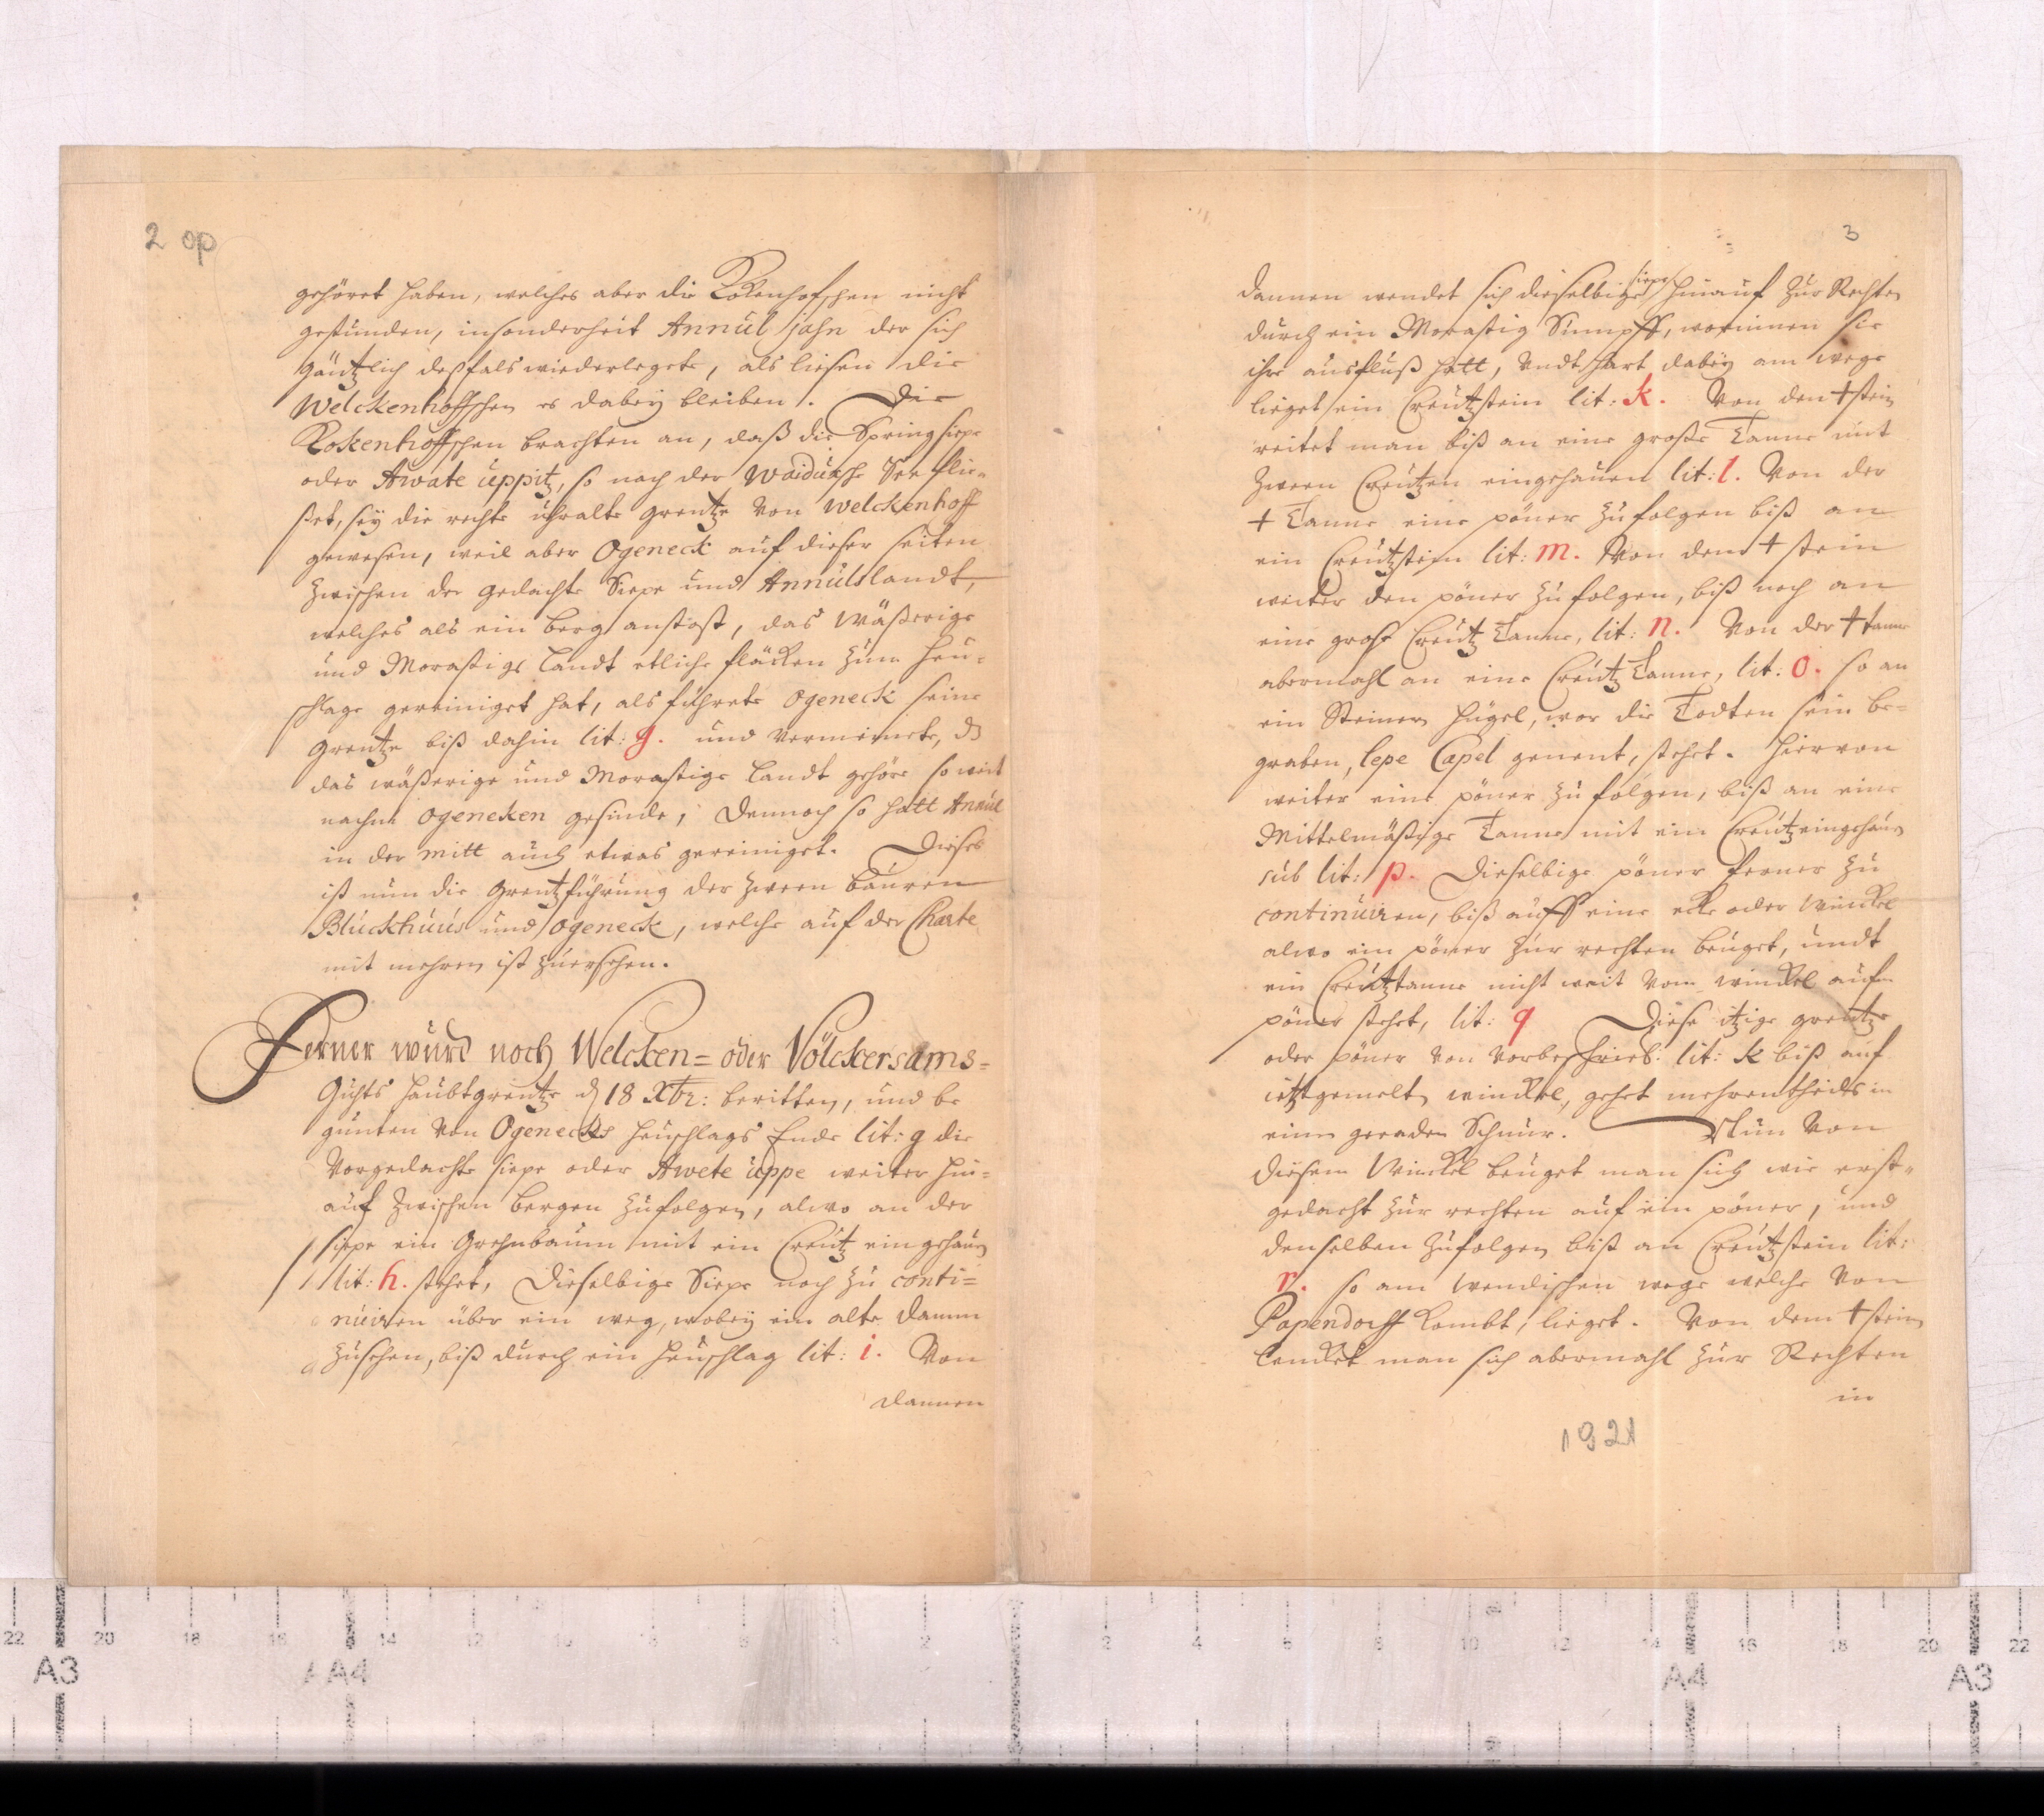 2 op
gehöret haben, welches aber die Kokenhofschen nicht
gestunden, insonderheit Annul jahn der sich
gäntzlich deßfals wiederlegete, als liesen die
Welckenhoffschen es dabey bleiben. Die
Kokenhoffschen brachten an, daß die Springsiepe
oder Awate uppitz, so nach der Waidusche See flie-
ßet, sey die rechte uhralte Grentze von Welckenhoff
gewesen, weil aber Ogeneck auf dieser seiten
zwischen der gedachte Siepe und Annuls landt,
welches als ein berg anstost, das wäßerige
und Morastige landt etliche fläcken zum heu-
schlage gereiniget hat, als führete Ogeneck seine
Grentze biß dahin lit: g. und vermeinete, dz
das wäßerige und Morastige landt gehöre so weit
nachm Ogeneken gesinde, Dennoch so hatt Annul
in der mitt auch etwas gereiniget. Dieses
ist nun die Grentzführung der zween bauren
Bluckhuus und Ogeneck, welche auf der Charte
mit mehren ist zuersehen.
Ferner wurd noch Welcken= oder Völckersams=
Guhts haubtgrentze d 18 Xbr: beritten, und be
gunten von Ogenecks heuschlags Ende lit: g die
vorgedachte siepe oder Awete uppe weiter hin-
auf zwischen bergen zufolgen, alwo an der
siepe ein Grehnbaum mit ein Creutz eingehauen
lit: h. stehet, Dieselbige Siepe noch zu conti=
nuiren über ein weg, wobey ein alte Damm
zusehen, biß durch ein heuschlag lit: i. Von
dannen
3
siepe
dannen wendet sich dieselbige hinauf zur Rechten
durch ein Morastig Sumpff, worinnen sie
ihre ausfluß hatt, undt hart dabey am wege
lieget ein Creutzstein lit: k. Von den † stein
reitet man biß an eine große Tanne mit
zween Creutzen eingehauen lit: l. Von der
† Tanne eine pöner zufolgen biß an
ein Creutzstein lit: m. Von dem † stein
weiter den pöner zufolgen, biß noch an
eine grose Creutz Tanne, lit: n. Von der † tanne
abermahl an eine Creutz Tanne, lit: o. so an
ein Steinern hügel, wor die Todten sein be-
graben, lepe Capel genent, stehet. Hiervon
weiter eine pöner zufolgen, biß an eine
Mittelmäßige Tanne mit ein Creutz eingehauen
sub lit: p. Dieselbige pöner ferner zu
continuiren, biß auff eine ecke oder Winckel
alwo ein pöner zur rechten beuget, undt
ein Creutztanne nicht weit vom winckel aufm
pöner stehet, lit: q Diese itzige grentze
oder pöner von vorbeschrieb: lit: k biß auf
ietztgemelten winckel, gehet mehrentheils in
einer geraden Schnur. Nun von
diesem Winckel beuget man sich wie erst-
gedacht zur rechten auf ein pöner, und
denselben zufolgen biß an Creutzstein lit:
r. so am Wendischen wege welche von
Papendorff kombt, lieget. Von dem † stein
lencket man sich abermahl zur Rechten
in
1921
22 20 18 16 14 12 10 8 6 4 2 2 4 6 8 10 12 14 16 18 20 22
A3 A4 A4 A3